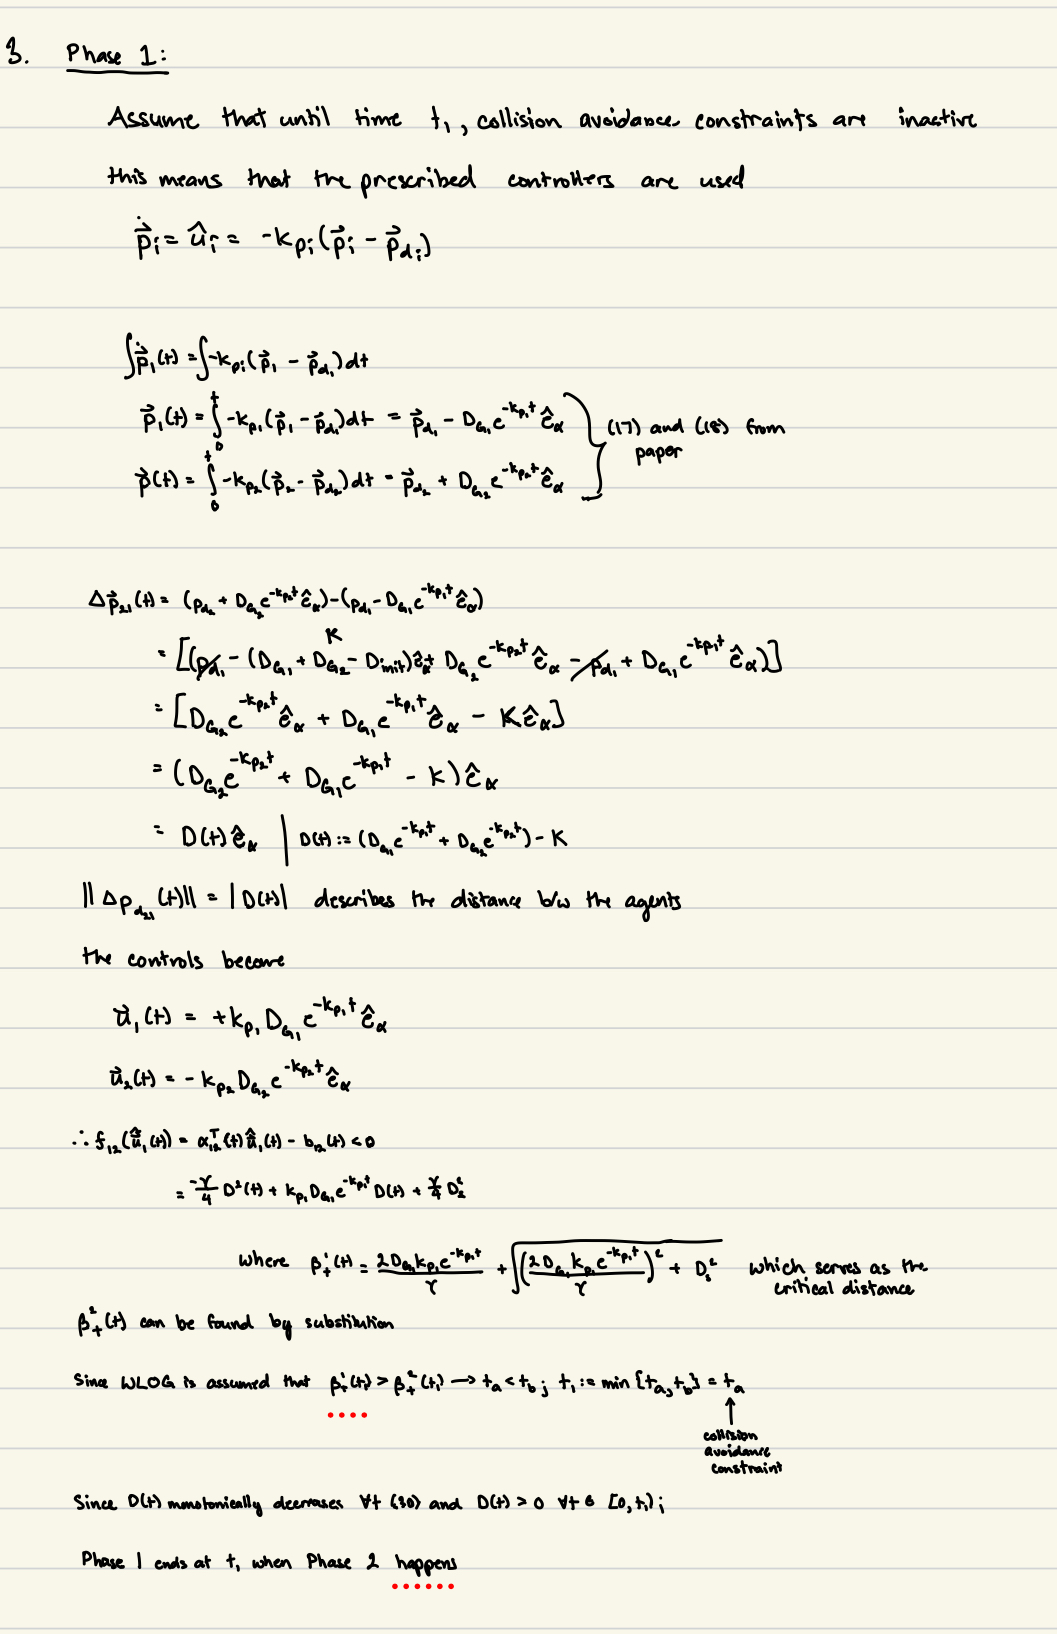 3. Phase 1:
Assume that until time t₁, collision avoidance constraints are inactive
this means that the prescribed controllers are used
\dot{\vec{p}}_i = \hat{u}_i = -k_{p_i}(\vec{p}_i - \vec{p}_{d_i})
∫\dot{\vec{p}}_1(t) = ∫-k_{p_i}(\vec{p}_1 - \vec{p}_{d_1})dt
\vec{p}_1(t) = ∫_0^t -k_{p_1}(\vec{p}_1 - \vec{p}_{d_1})dt = \vec{p}_{d_1} - D_{G_1}e^{-k_{p_1}t}\hat{e}_α
(17) and (18) from
paper
\vec{p}(t) = ∫_0^t -k_{p_2}(\vec{p}_2 - \vec{p}_{d_2})dt = \vec{p}_{d_2} + D_{G_2}e^{-k_{p_2}t}\hat{e}_α
Δ\vec{p}_{21}(t) = (p_{d_2} + D_{G_2}e^{-k_{p_2}t}\hat{e}_α) - (p_{d_1} - D_{G_1}e^{-k_{p_1}t}\hat{e}_α)
K
= [(p_{d_1} - (D_{G_1} + D_{G_2} - D_{init})\hat{e}_α + D_{G_2}e^{-k_{p_2}t}\hat{e}_α - p_{d_1} + D_{G_1}e^{-k_{p_1}t}\hat{e}_α)]
= [D_{G_2}e^{-k_{p_2}t}\hat{e}_α + D_{G_1}e^{-k_{p_1}t}\hat{e}_α - K\hat{e}_α]
= (D_{G_2}e^{-k_{p_2}t} + D_{G_1}e^{-k_{p_1}t} - K)\hat{e}_α
= D(t)\hat{e}_α | D(t) := (D_{G_1}e^{-k_{p_1}t} + D_{G_2}e^{-k_{p_2}t}) - K
||Δp_{d_{21}}(t)|| = |D(t)| describes the distance b/w the agents
the controls become
\vec{u}_1(t) = +k_{p_1}D_{G_1}e^{-k_{p_1}t}\hat{e}_α
\vec{u}_2(t) = -k_{p_2}D_{G_2}e^{-k_{p_2}t}\hat{e}_α
∴ f_{12}(\hat{u}_1(t)) = α_{12}^T(t)\hat{u}_1(t) - b_{12}(t) < 0
= \frac{-γ}{4}D²(t) + k_{p_1}D_{G_1}e^{-k_{p_1}t}D(t) + \frac{γ}{4}D_s^2
where β_+^1(t) = \frac{2D_{G_1}k_{p_1}e^{-k_{p_1}t}}{γ} + \sqrt{(\frac{2D_{G_1}k_{p_1}e^{-k_{p_1}t}}{γ})^2 + D_s^2} which serves as the
critical distance
β_+^2(t) can be found by substitution
Since WLOG is assumed that β_+^1(t_1) > β_+^2(t_1) → t_a < t_b ; t_1 := min{t_a, t_b} = t_a
collision
avoidance
constraint
Since D(t) monotonically decreases ∀t (≥0) and D(t) > 0 ∀t ∈ [0, t₁) ;
Phase 1 ends at t₁ when Phase 2 happens